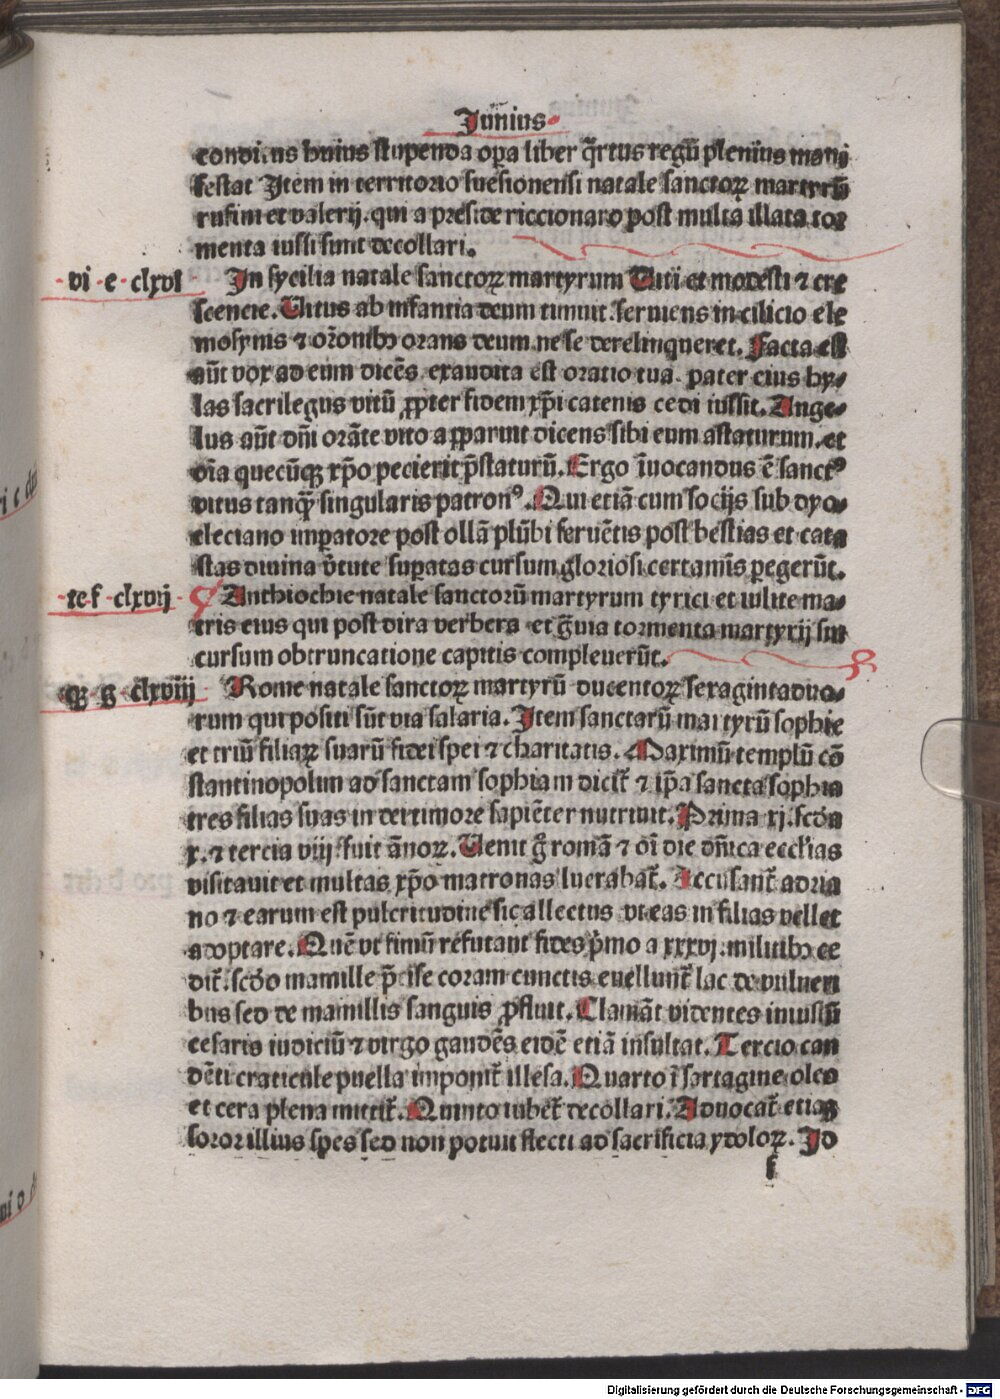 Junius
conditus huius stupenda oꝑa liber q̄rtus regū pleniꝰus mani
festat Item in territorio suesionensi natale sanctoꝝ martyrū
rufini et valerij. qui a preside riccionaro post multa illata tor
menta iussi sunt decollari.
vi e clxvi
In sycilia natale sanctoꝝ martyrum Uiti et modesti ⁊ cre
scencie. Uitus ab infantia deum timuit. seruiens in cilicio ele
mosynis ⁊ or̄onibꝫ orans deum ne se derelinqueret. Facta est
aūt vox ad eum dicēs exaudita est oratio tua. pater eius hy-
las sacrilegus vitū ꝓpter fidem xp̄i catenis cedi iussit. Ange-
lus aūt dn̄i orāte vito apparuit dicens sibi eum astaturum. et
oīa quecūqꝫ xp̄o pecierit p̄staturū. Ergo īuocandus ē sanctꝰ
vitus tanq̄ singularis patronꝰ. Qui etiā cum socijs sub dyo-
cleciano imꝑatore post ollā plūbi feruētis post bestias et cata
stas diuina v̄tute suꝑatas cursum gloriosi certamīs ꝑegerūt.
te f clxvij
Anthiochie natale sanctorū martyrum tyrici et iulite ma-
tris eius qui post dira verbera et g̃uia tormenta martyrij sui
cursum obtruncatione capitis compleuerūt.
qꝫ g clxviij
Rome natale sanctoꝝ martyrū ducentoꝝ sexagintaduo-
rum qui positi sūt via salaria. Item sanctarū martyrū sophie
et triū filiaꝝ suarū fidei spei ⁊ charitatis. Maximū templū cō
stantinopolim ad sanctam sophiam dicit̄ ⁊ ip̄a sancta sophia
tres filias suas in dei timore sapiēter nutriuit. Prima xj. scd̄a
x. ⁊ tercia viij fuit ānoꝝ. Uenit g̊ romā ⁊ oī die dn̄ica eccl̄ias
visitauit et multas xp̄o matronas lucrabat̄. Accusant̄ adria
no ⁊ earum est pulcritudine sic allectus vt eas in filias vellet
adoptare. Quē vt fimū refutant fides p̄mo a xxxvj. militibꝫ ce
dit̄. scd̄o mamille p̄cise coram cunctis euellunt̄ lac de vulneri
bus sed de mamillis sanguis ꝓfluit. Clamāt videntes iniustū
cesaris iudiciū ⁊ virgo gaudēs eidē etiā insultat. Tercio can
dēti craticule puella imponit̄ illesa. Quarto ī sartagine oleo
et cera plena mittit̄. Quinto iubet̄ decollari. Aduocat̄ etiaꝫ
soror illius spes sed non potuit flecti ad sacrificia ydoloꝝ. Id
f
Digitalisierung gefördert durch die Deutsche Forschungsgemeinschaft - DFG